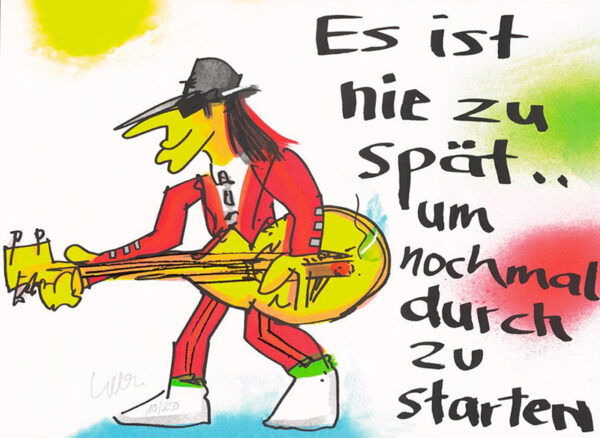 Es ist
nie zu
spät..
um
nochmal
durch
zu
starten
10/250